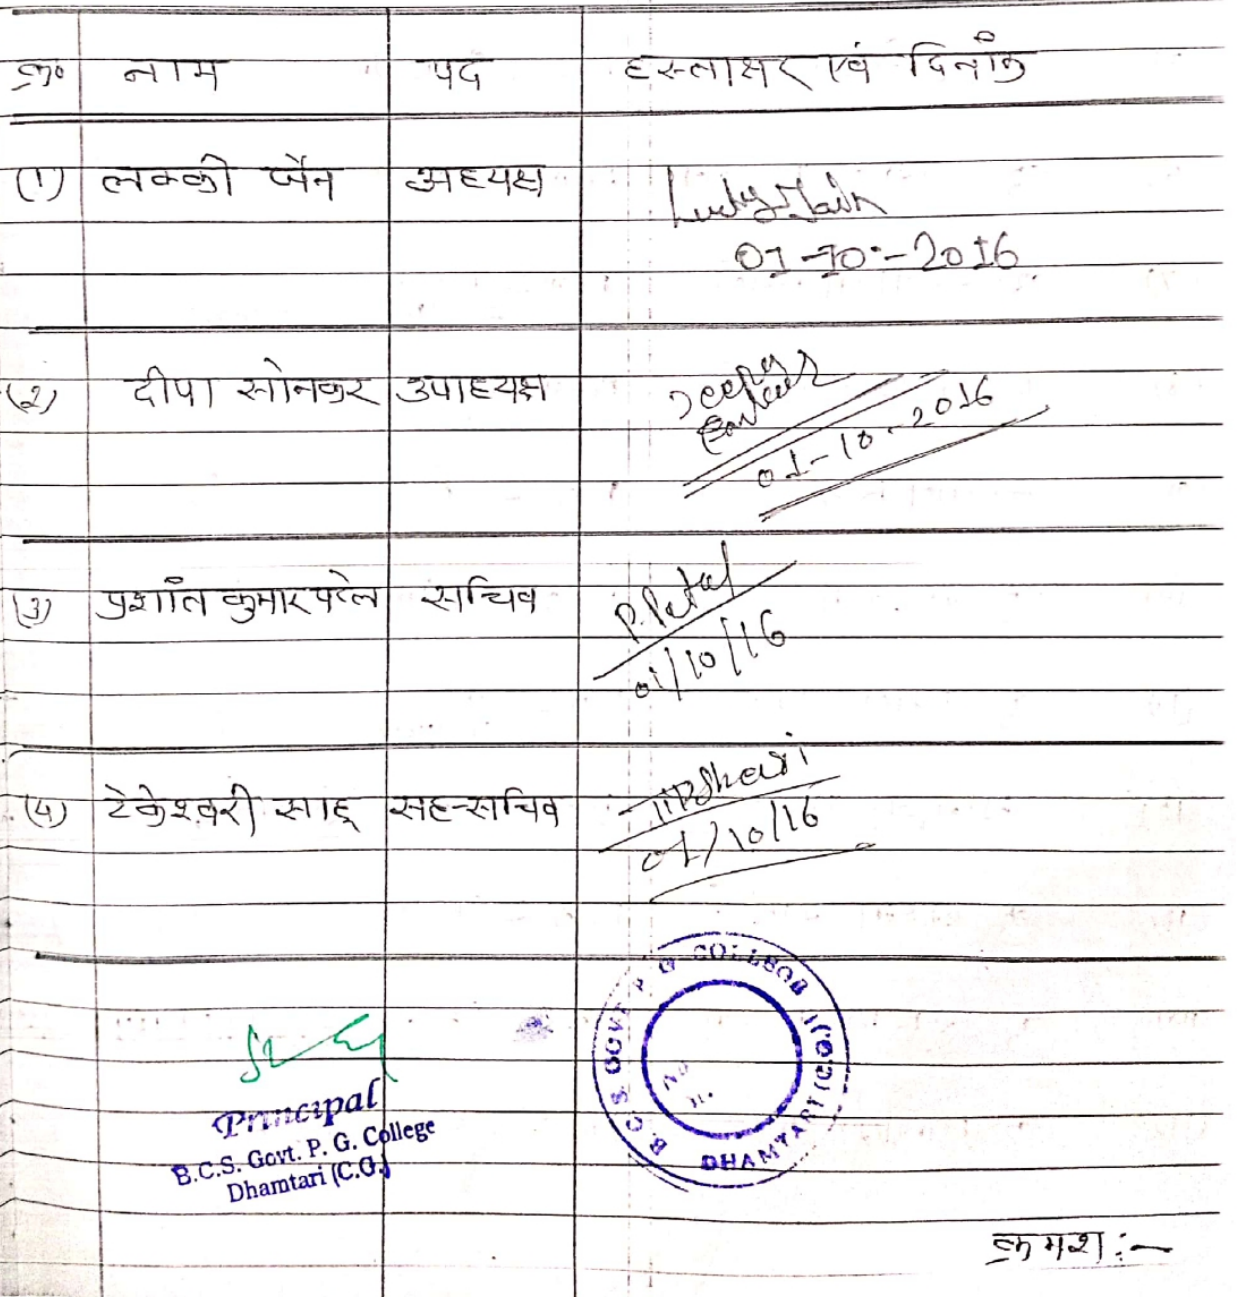 क्र० नाम पद हस्ताक्षर एवं दिनाँक
(1) लक्की जैन अध्यक्ष Lucky Jain
01-10-2016
(2) दीपा सोनकर उपाध्यक्ष Deepa
01-10-2016
(3) प्रशांत कुमार पटेल सचिव P. Patel
01/10/16
(4) टेकेश्वरी साहू सह-सचिव
01/10/16
Principal
B.C.S. Govt. P. G. College
Dhamtari (C.G.)
B.C.S. GOVT P G COLLEGE
DHAMTARI
क्रमश:-